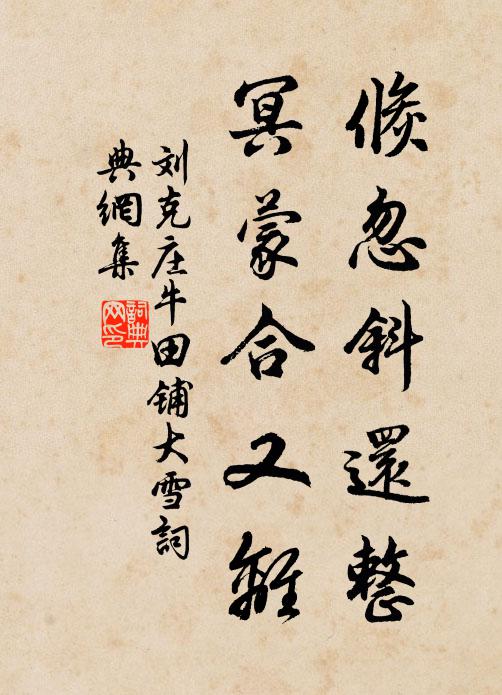 倐忽斜還整
冥蒙合又離
刘克庄牛田铺大雪詞
典網集
詞典
网印